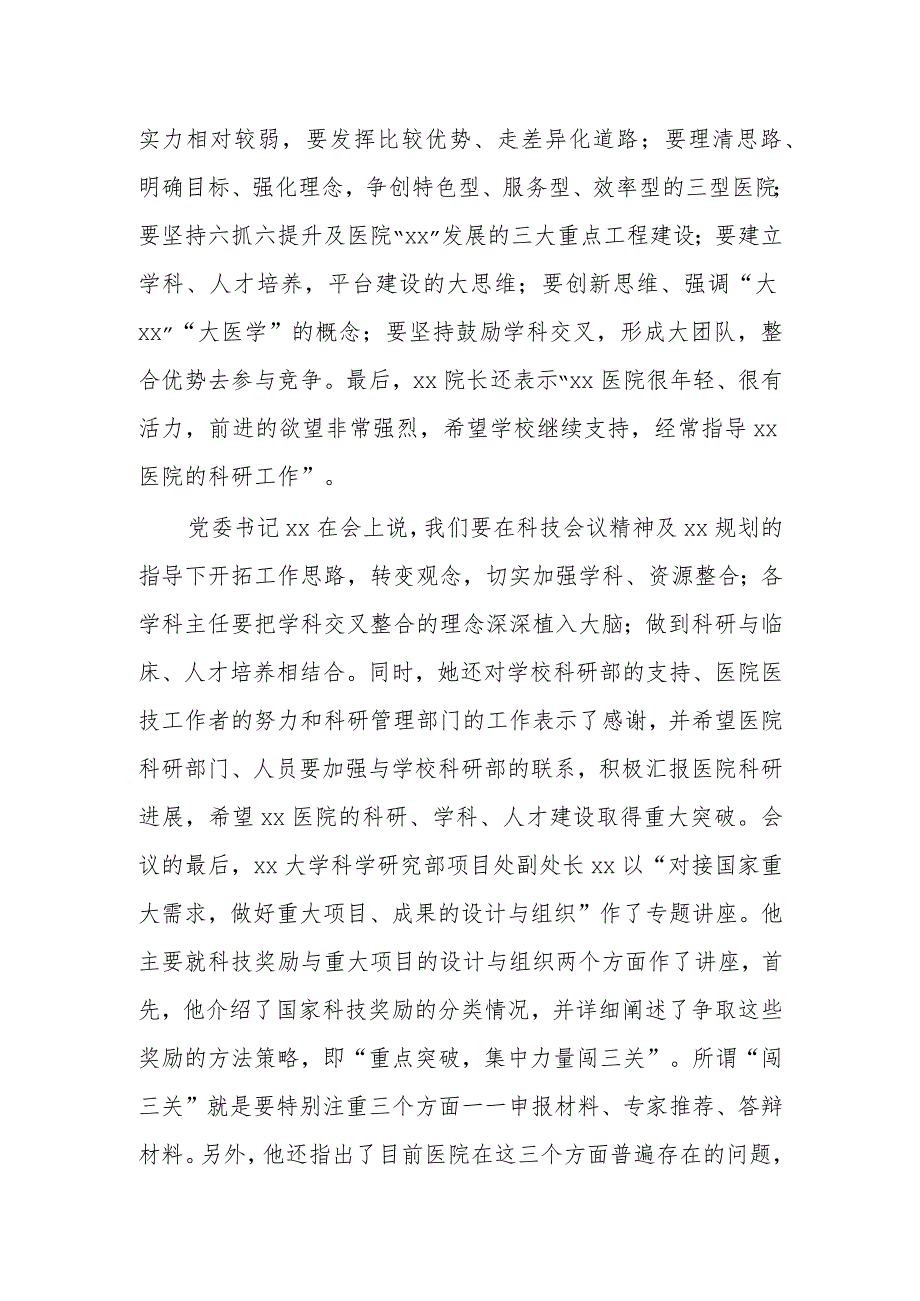 实力相对较弱，要发挥比较优势、走差异化道路；要理清思路、
明确目标、强化理念，争创特色型、服务型、效率型的三型医院；
要坚持六抓六提升及医院“xx”发展的三大重点工程建设；要建立
学科、人才培养，平台建设的大思维；要创新思维、强调“大
xx”“大医学”的概念；要坚持鼓励学科交叉，形成大团队，整
合优势去参与竞争。最后，xx 院长还表示“xx 医院很年轻、很有
活力，前进的欲望非常强烈，希望学校继续支持，经常指导 xx
医院的科研工作”。
党委书记 xx 在会上说，我们要在科技会议精神及 xx 规划的
指导下开拓工作思路，转变观念，切实加强学科、资源整合；各
学科主任要把学科交叉整合的理念深深植入大脑；做到科研与临
床、人才培养相结合。同时，她还对学校科研部的支持、医院医
技工作者的努力和科研管理部门的工作表示了感谢，并希望医院
科研部门、人员要加强与学校科研部的联系，积极汇报医院科研
进展，希望 xx 医院的科研、学科、人才建设取得重大突破。会
议的最后，xx 大学科学研究部项目处副处长 xx 以“对接国家重
大需求，做好重大项目、成果的设计与组织”作了专题讲座。他
主要就科技奖励与重大项目的设计与组织两个方面作了讲座，首
先，他介绍了国家科技奖励的分类情况，并详细阐述了争取这些
奖励的方法策略，即“重点突破，集中力量闯三关”。所谓“闯
三关”就是要特别注重三个方面一一申报材料、专家推荐、答辩
材料。另外，他还指出了目前医院在这三个方面普遍存在的问题，